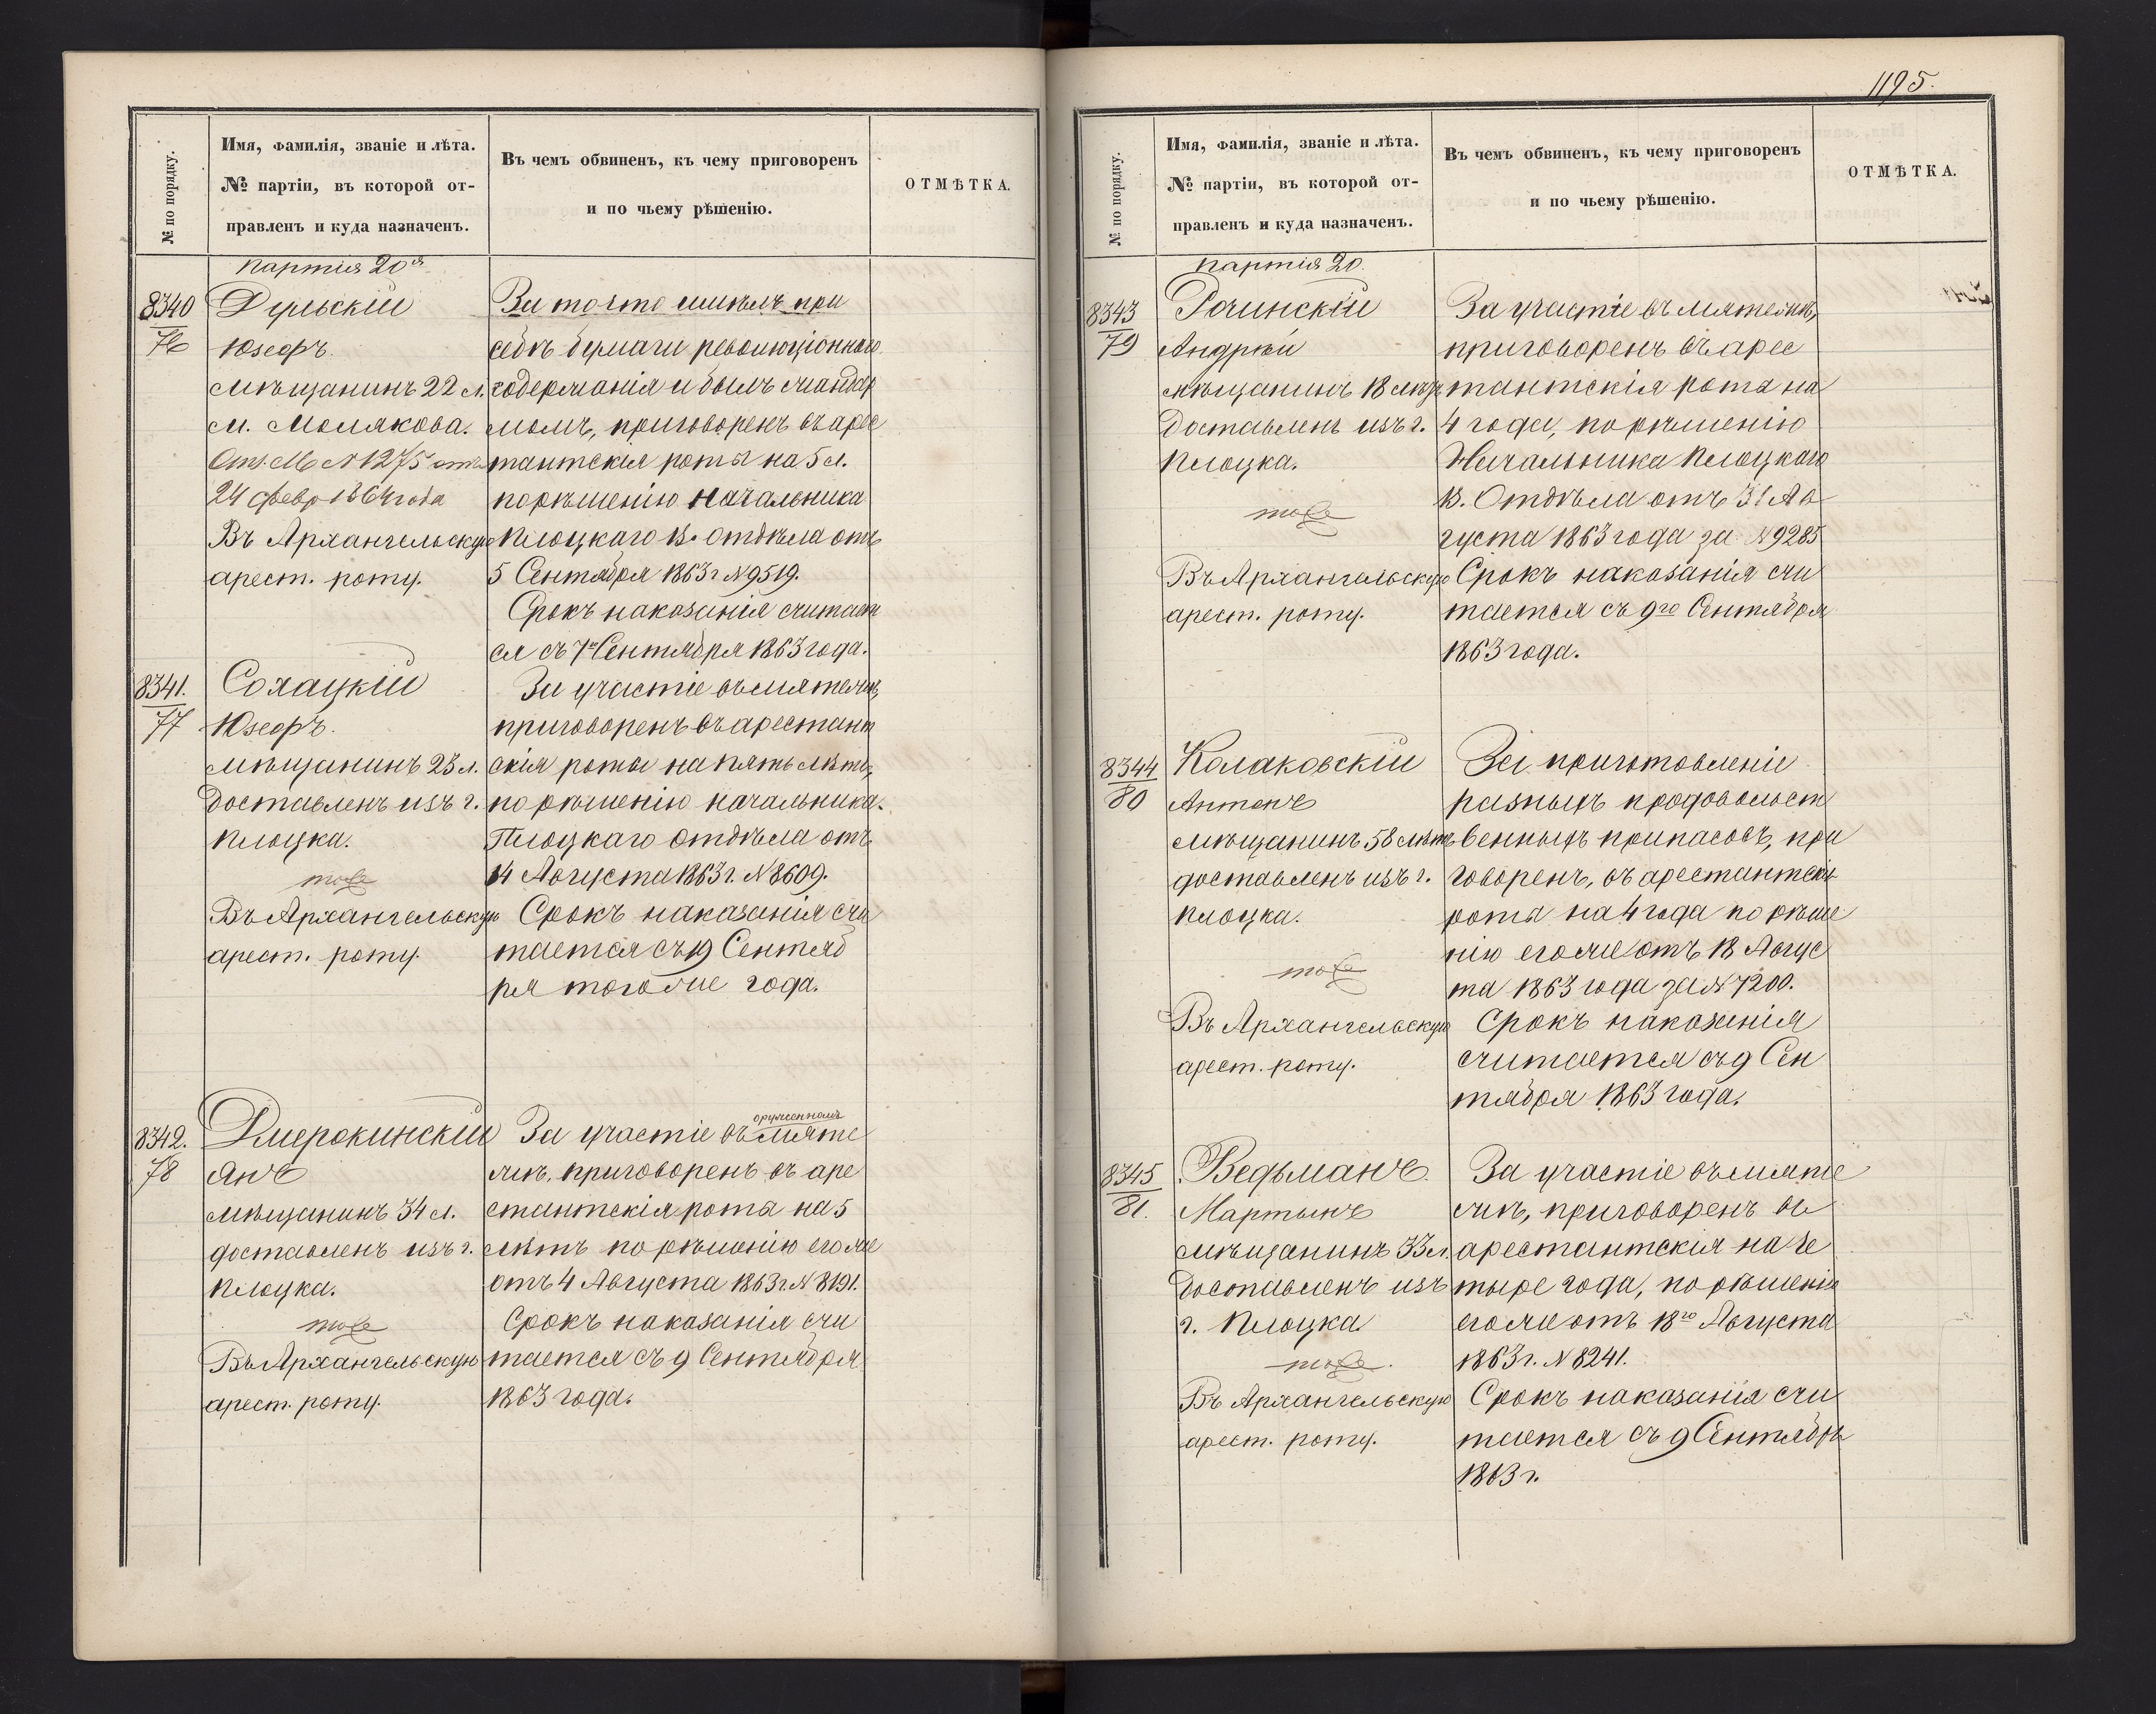 № по порядку.
Имя, фамилія, званіе и лѣта.
№ партіи, въ которой от-
правленъ и куда назначенъ.
Въ чемъ обвиненъ, къ чему приговоренъ
и по чьему рѣшенію.
ОТМѢТКА.
партія 20я
8340
76
Дульскій
Юзефъ.
мѣщанинъ 22 л.
м. Молякова.
От. М. № 1275 отъ
24 февр 1864 года
Въ Архангельскую
арест. роту.
За то что имѣлъ при
себѣ бумаги революціоннаго
содержанія и былъ жандар
момъ, приговоренъ въ арес
тантскія роты на 5 л.
по рѣшенію Начальника
Плоцкаго В. Отдѣла отъ
5 Сентября 1863 г № 9519.
Срокъ наказанія считает
ся съ 7го Сентября 1863 года.
8341.
77
Солацкій
Юзефъ.
мѣщанинъ 23 л.
Доставленъ изъ г.
Плоцка.
тоже
Въ Архангельскую
арест. роту.
За участіе въ мятежѣ,
приговоренъ въ арестант
скія роты на пять лѣтъ,
по рѣшенію Начальника
Плоцкаго Отдѣла отъ
14 Августа 1863 г. № 8609.
Срокъ наказанія счи
тается съ 19 Сентяб
ря того же года.
8342.
78
Янъ
мѣщанинъ 34 л.
доставленъ изъ г.
Плоцка.
тоже
Въ Архангельскую
арест. роту.
оруженномъ
За участіе въ мяте
жѣ, приговоренъ въ аре
стантскія роты на 5
лѣтъ по рѣшенію его же
отъ 4 Августа 1863 г. № 8191.
Срокъ наказанія счи
тается съ 9 Сентября
1863 года.
1195.
№ по порядку.
Имя, фамилія, званіе и лѣта.
№ партіи, въ которой от-
правленъ и куда назначенъ.
Въ чемъ обвиненъ, къ чему приговоренъ
и по чьему рѣшенію.
ОТМѢТКА.
партія 20.
8343
79
Рачинскій
Андрей
мѣщанинъ 18 лѣтъ
Доставленъ изъ г.
Плоцка.
тоже
Въ Архангельскую
арест. роту.
За участіе въ мятежѣ,
приговоренъ въ арес
тантскія роты на
4 года, по рѣшенію
Начальника Плоцкаго
В. Отдѣла отъ 31 Ав
густа 1863 года за № 9285
Срокъ наказанія счи
тается съ 9го Сентября
1863 года.
8344
80
Колаковскій
Антонъ
мѣщанинъ, 58 лѣтъ
доставленъ изъ г.
Плоцка.
тоже
Въ Архангельскую
арест. роту.
За приготовленіе
разныхъ продовольст
венныхъ припасовъ, при
говоренъ, въ арестантскія
роты на 4 года по рѣше
нію его же отъ 18 Авгус
та 1863 года за № 7200.
Срокъ наказанія
считается съ 9 Сен
тября 1863 года.
8345
81.
Ведьманъ
Мартынъ
мѣщанинъ 33 л.
Доставленъ изъ
г. Плоцка
тоже.
Въ Архангельскую
арест. роту.
За участіе въ мяте
жѣ, приговоренъ въ
арестантскія на че
тыре года, по рѣшенію
его же отъ 18го Августа
1863 г. № 8241.
Срокъ наказанія счи
тается съ 9 Сентября
1863 г.